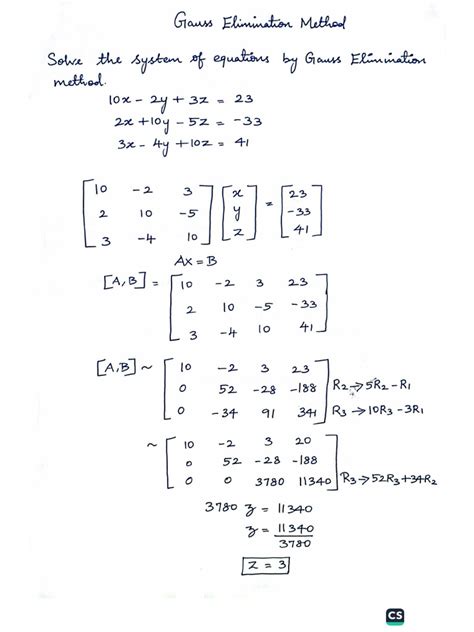 Gauss Elimination Method
Solve the system of equations by Gauss Elimination
method.
10x - 2y + 3z = 23
2x + 10y - 5z = -33
3x - 4y + 10z = 41
[10 -2 3] [x] = [23]
[2 10 -5] [y] [-33]
[3 -4 10] [z] [41]
Ax = B
[A,B] = [10 -2 3 23]
[2 10 -5 -33]
[3 -4 10 41]
[A,B] ~ [10 -2 3 23]
[0 52 -28 -188] R2→5R2-R1
[0 -34 91 341] R3→10R3-3R1
~ [10 -2 3 20]
[0 52 -28 -188]
[0 0 3780 11340] R3→52R3+34R2
3780 z = 11340
z = 11340
3780
z = 3
CS